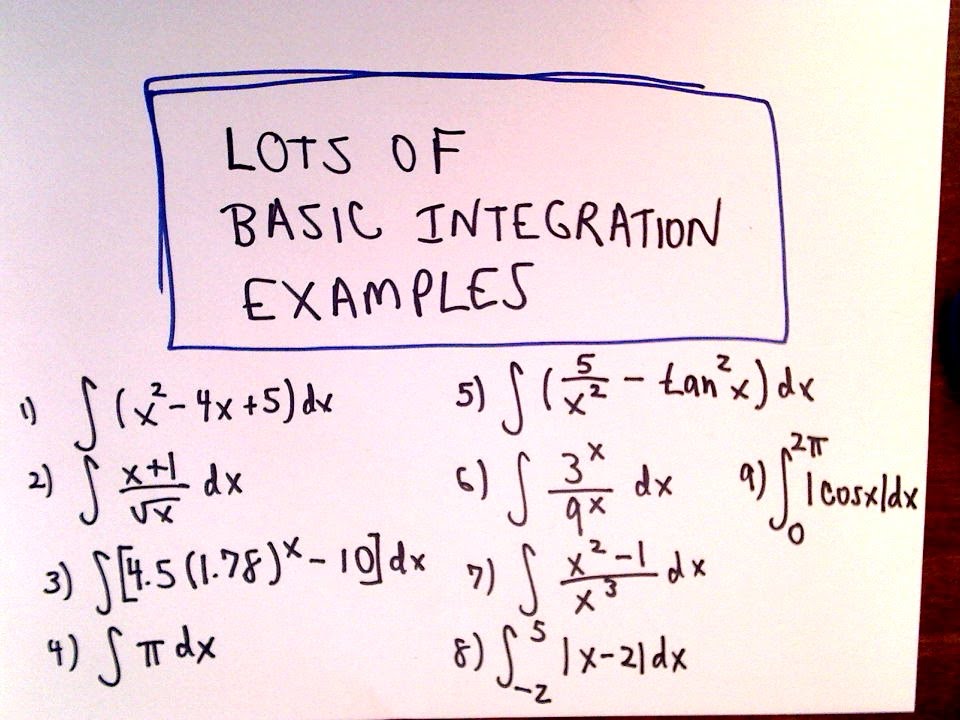 LOTS OF
BASIC INTEGRATION
EXAMPLES
1) ∫(x²-4x+5)dx
2) ∫ (x+1)/√x dx
3) ∫[4.5(1.78)ˣ-10]dx
4) ∫ π dx
5) ∫(5/x² - tan²x)dx
6) ∫ 3ˣ/9ˣ dx
7) ∫ (x²-1)/x³ dx
8) ∫₋₂⁵ |x-2|dx
9) ∫₀²π |cosx|dx